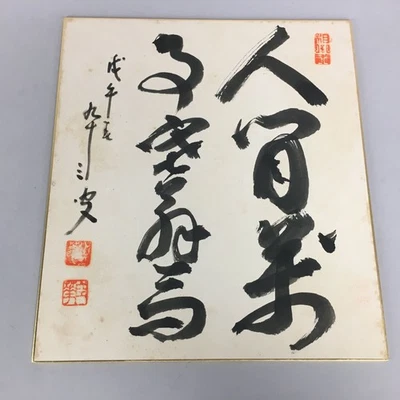 人間萬
事塞翁馬
戊午春
九十三叟